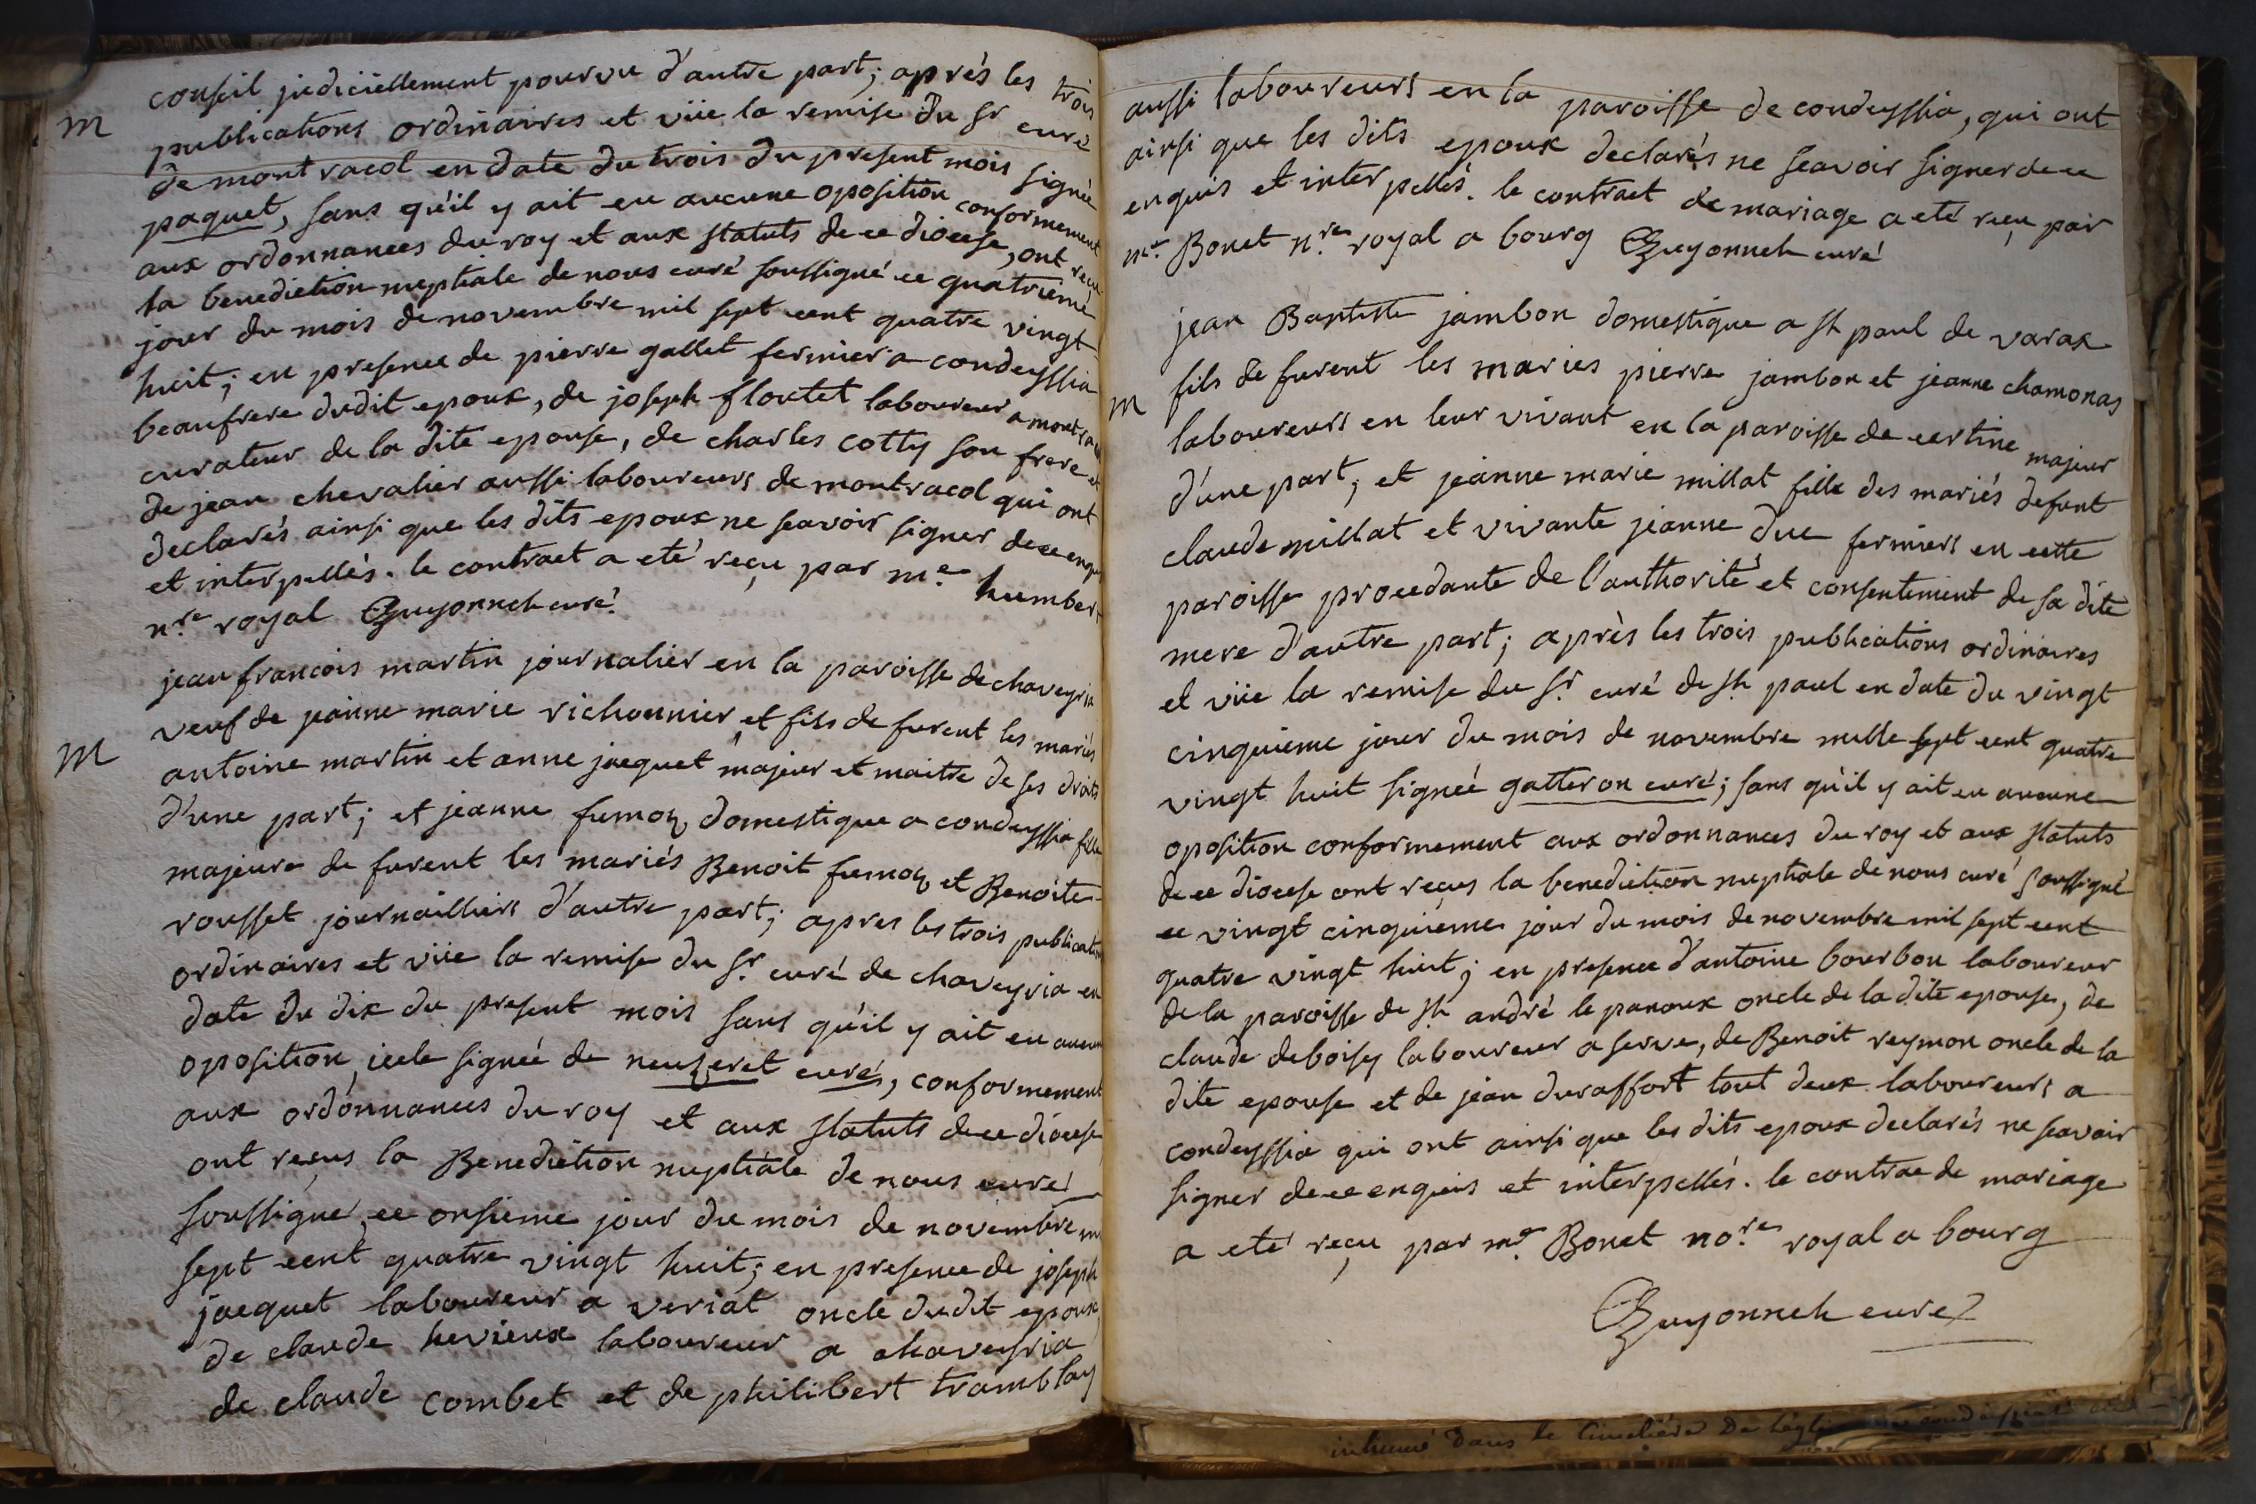 conseil judiciellement pourvu d'autre part; après les trois
m
publications ordinaires et vüe la remise du Sr curé
de montracol en date du trois du present mois signée
paquet, sans qu'il y ait eu aucune oposition conformement
aux ordonnances du roy et aux statuts de ce diocese, ont reçu
la benediction nuptiale de nous curé soussigné ce quatrieme
jour du mois de novembre mil sept cent quatre vingt
huit; en presence de pierre gallet fermier a condeyssia
beaufrere dudit epoux, de joseph floutet laboureur a montracol
curateur de la dite epouse, de charles cotty son frere et
de jean chevalier aussi laboureurs de montracol qui ont
declarés ainsi que les dits epoux ne scavoir signer de ce enquis
et interpellés. le contract a eté reçu par me. humbert
nre. royal Guyonneh curé.
jean francois martin journalier en la paroisse de chaveyria
veuf de jeanne marie richonnier et fils de furent les mariés
m
antoine martin et anne jacquet majeur et maitre de ses droits
d'une part; et jeanne fumoz domestique a condeyssia fille
majeure de furent les mariés Benoit fumoz et Benoite
rousset journailliers d'autre part; apres les trois publications
ordinaires et vüe la remise du Sr. curé de chaveyria en
date du dix du present mois sans qu'il y ait eu aucune
oposition, icelle signée de neuzeret curé, conformement
aux ordonnances du roy et aux statuts de ce diocese
ont reçus la Benediction nuptiale de nous curé
soussigné ce onsieme jour du mois de novembre mil
sept cent quatre vingt huit; en presence de joseph
jacquet laboureur a veriat oncle dudit epoux
de claude hevieux laboureur a chaveyria
de claude combet et de philibert tramblay
aussi laboureurs en la paroisse de condeyssia, qui ont
ainsi que les dits epoux declarés ne scavoir signer de ce
enquis et interpellés. le contract de mariage a eté reçu par
me. Bonet nre. royal a bourg Guyonneh curé
jean Baptiste jambon domestique a st paul de varax
fils de furent les maries pierre jambon et jeanne chamonas
m
laboureurs en leur vivant en la paroisse de certine majeur
d'une part, et jeanne marie millat fille des mariés defunt
claude millat et vivante jeanne duc fermiers en cette
paroisse procedante de l'authorité et consentement de sa dite
mere d'autre part; après les trois publications ordinaires
et vüe la remise du Sr. curé de st paul en date du vingt
cinquieme jour du mois de novembre mille sept cent quatre
vingt huit signée gatteron curé; sans qu'il y ait eu aucune
oposition conformement aux ordonnances du roy et aux statuts
de ce diocese ont reçus la benediction nuptiale de nous curé soussigné
ce vingt cinquieme jour du mois de novembre mil sept cent
quatre vingt huit; en presence d'antoine bourbon laboureur
de la paroisse de st andré le panoux oncle de la dite epouse, de
claude deboisy laboureur a serve, de Benoit reymon oncle de la
dite epouse et de jean duraffort tout deux laboureurs a
condeyssia qui ont ainsi que les dits epoux declarés ne scavoir
signer de ce enquis et interpellés. le contrac de mariage
a eté reçu par me. Bonet nore. royal a bourg
Guyonneh curé
inhumé dans le Cimetière De l'église